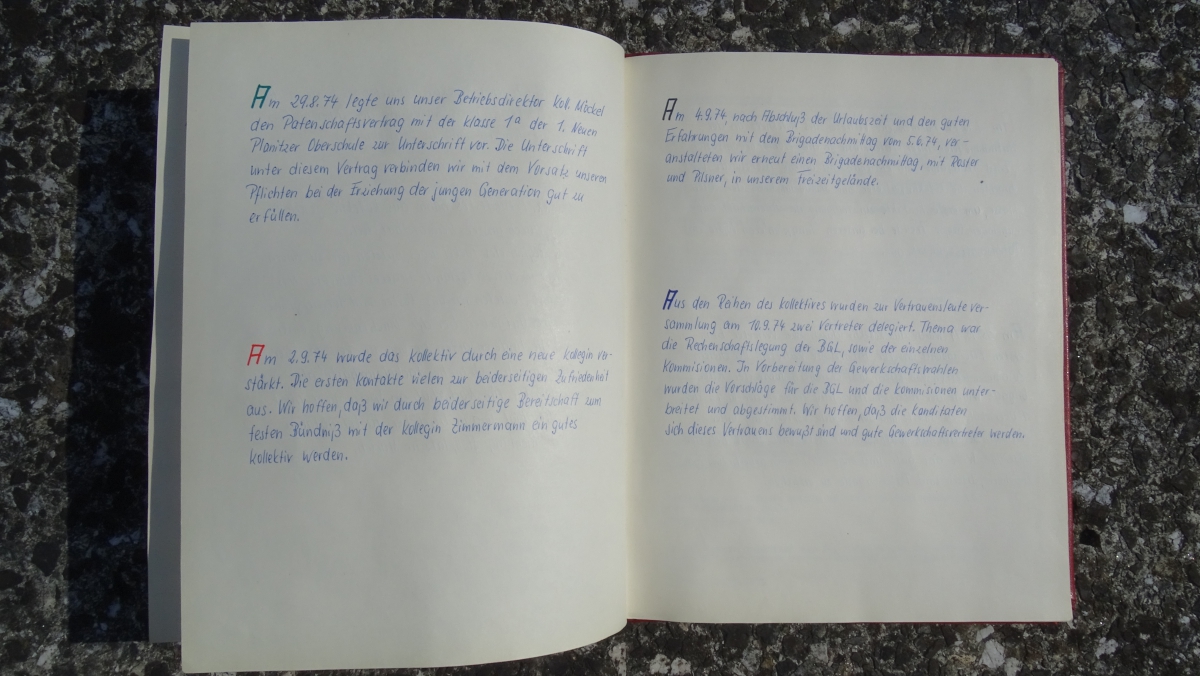 Am 29.8.74 legte uns unser Betriebsdirektor Koll. Möckel
den Patenschaftsvertrag mit der Klasse 1a der 1. Neuen
Planitzer Oberschule zur Unterschrift vor. Die Unterschrift
unter diesem Vertrag verbinden wir mit dem Vorsatz unseren
Pflichten bei der Erziehung der jungen Generation gut zu
erfüllen.
Am 2.9.74 wurde das Kollektiv durch eine neue Kollegin ver-
stärkt. Die ersten Kontakte vielen zur beiderseitigen Zufriedenheit
aus. Wir hoffen, daß wir durch beiderseitige Bereitschaft zum
festen Bündniß mit der Kollegin Zimmermann ein gutes
Kollektiv werden.
Am 4.9.74, nach Abschluß der Urlaubszeit und den guten
Erfahrungen mit dem Brigadenachmittag vom 5.6.74, ver-
anstalteten wir erneut einen Brigadenachmittag, mit Roster
und Pilsner, in unserem Freizeitgelände.
Aus den Reihen des Kollektives wurden zur Vertrauensleute ver-
sammlung am 10.9.74 zwei Vertreter delegiert. Thema war
die Rechenschaftslegung der BGL, sowie der einzelnen
Kommisionen. In Vorbereitung der Gewerkschaftswahlen
wurden die Vorschläge für die BGL und die Kommisionen unter-
breitet und abgestimmt. Wir hoffen, daß die Kanditaten
sich dieses Vertrauens bewußt sind und gute Gewerkschaftsvertreter werden.